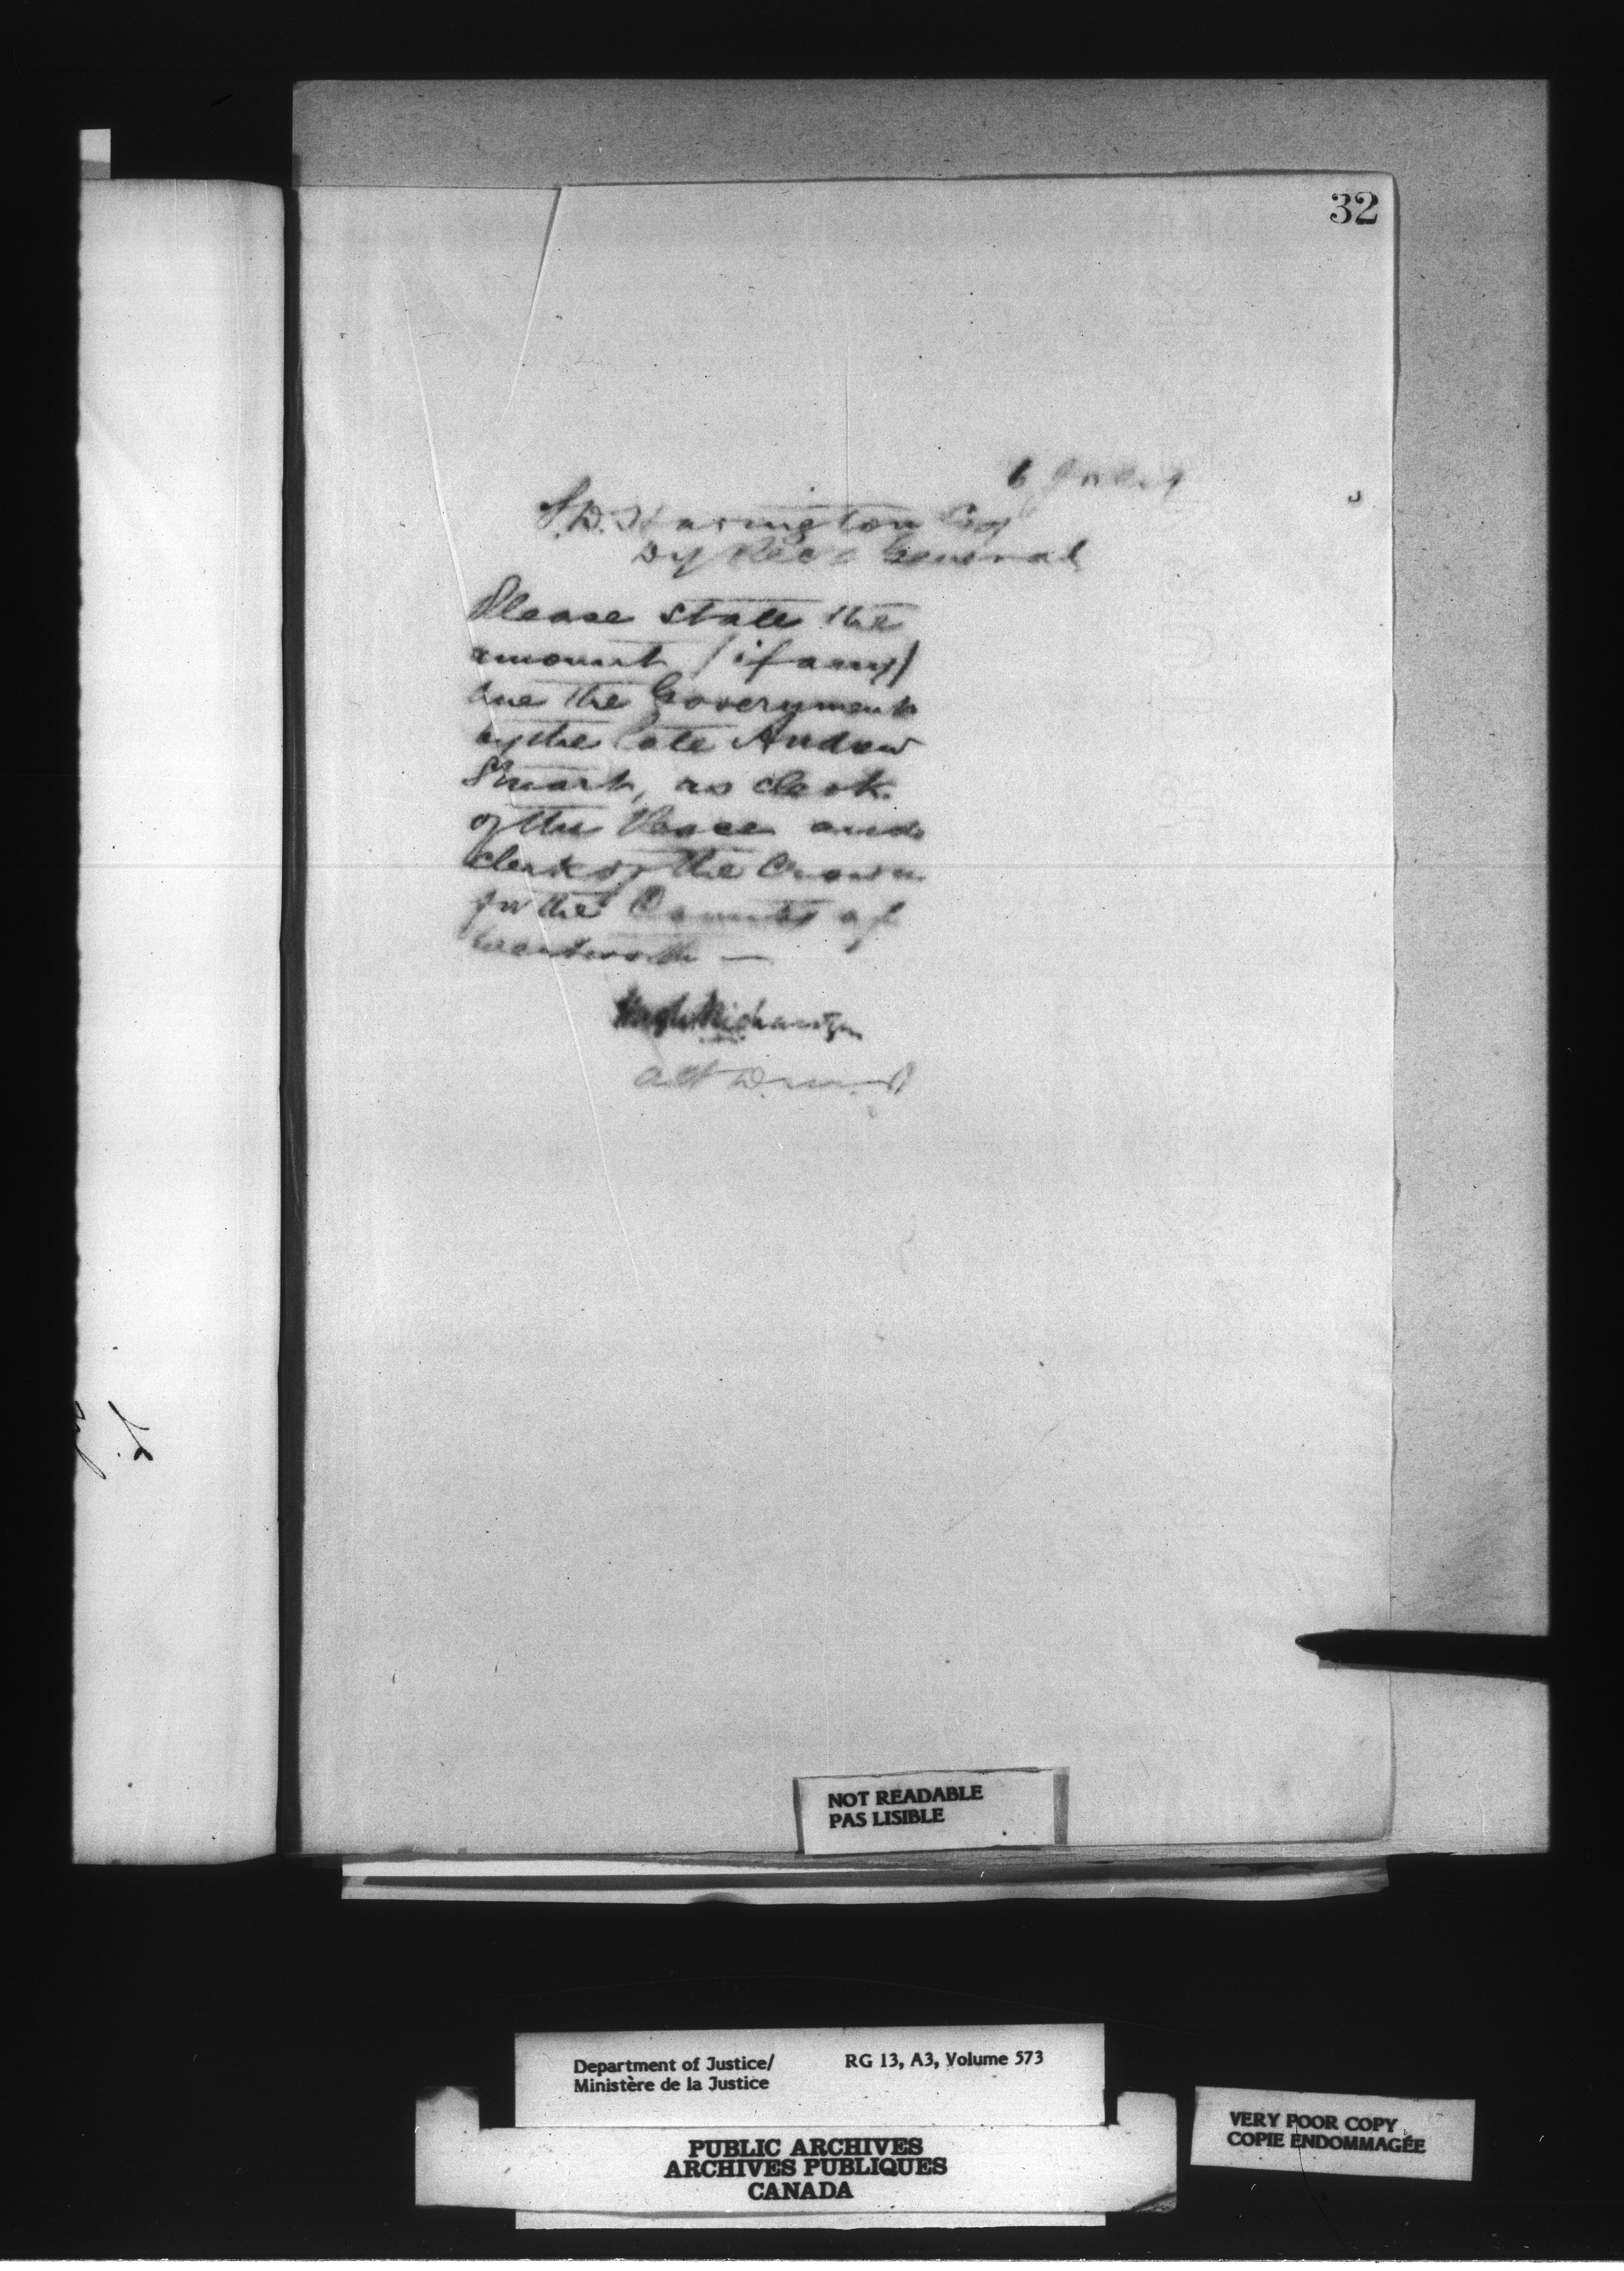 32
6
T.D. Harington Esq
Dy Rec r General
Please state the
amount (if any)
due the Government
by the late Andrew
Stuart, as clerk
of the Peace and
clerk of the Crown
for the County of
Wentworth —
Hugh Richardson
NOT READABLE
PAS LISIBLE
Department of Justice/ RG 13, A3, Volume 573
Ministère de la Justice
PUBLIC ARCHIVES
ARCHIVES PUBLIQUES
CANADA
VERY POOR COPY
COPIE ENDOMMAGÉE